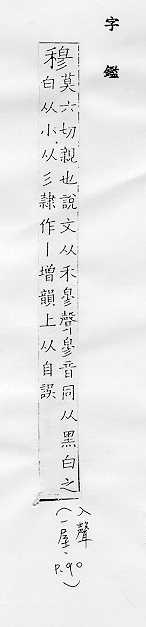 字鑑
穆
莫六切親也說文从禾㣎聲㣎音同从黑白之
白从小从彡隸作丨增韻上从自誤
(入聲
一屋、P.90)